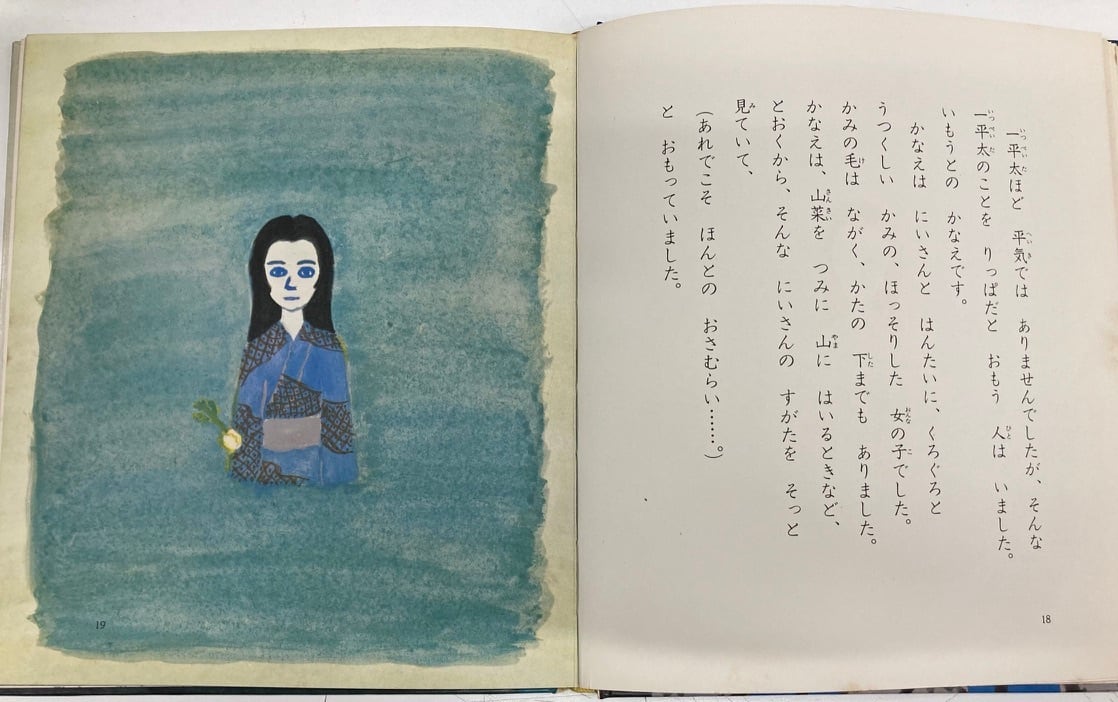 一平太ほど　平気では　ありませんでしたが、そんな
一平太のことを　りっぱだと　おもう　人は　いました。
いもうとの　かなえです。
かなえは　にいさんと　はんたいに、くろぐろと
うつくしい　かみの、ほっそりした　女の子でした。
かみの毛は　ながく、かたの　下までも　ありました。
かなえは、山菜を　つみに　山に　はいるときなど、
とおくから、そんな　にいさんの　すがたを　そっと
見ていて、
（あれでこそ　ほんとの　おさむらい……。）
と　おもっていました。
18
19